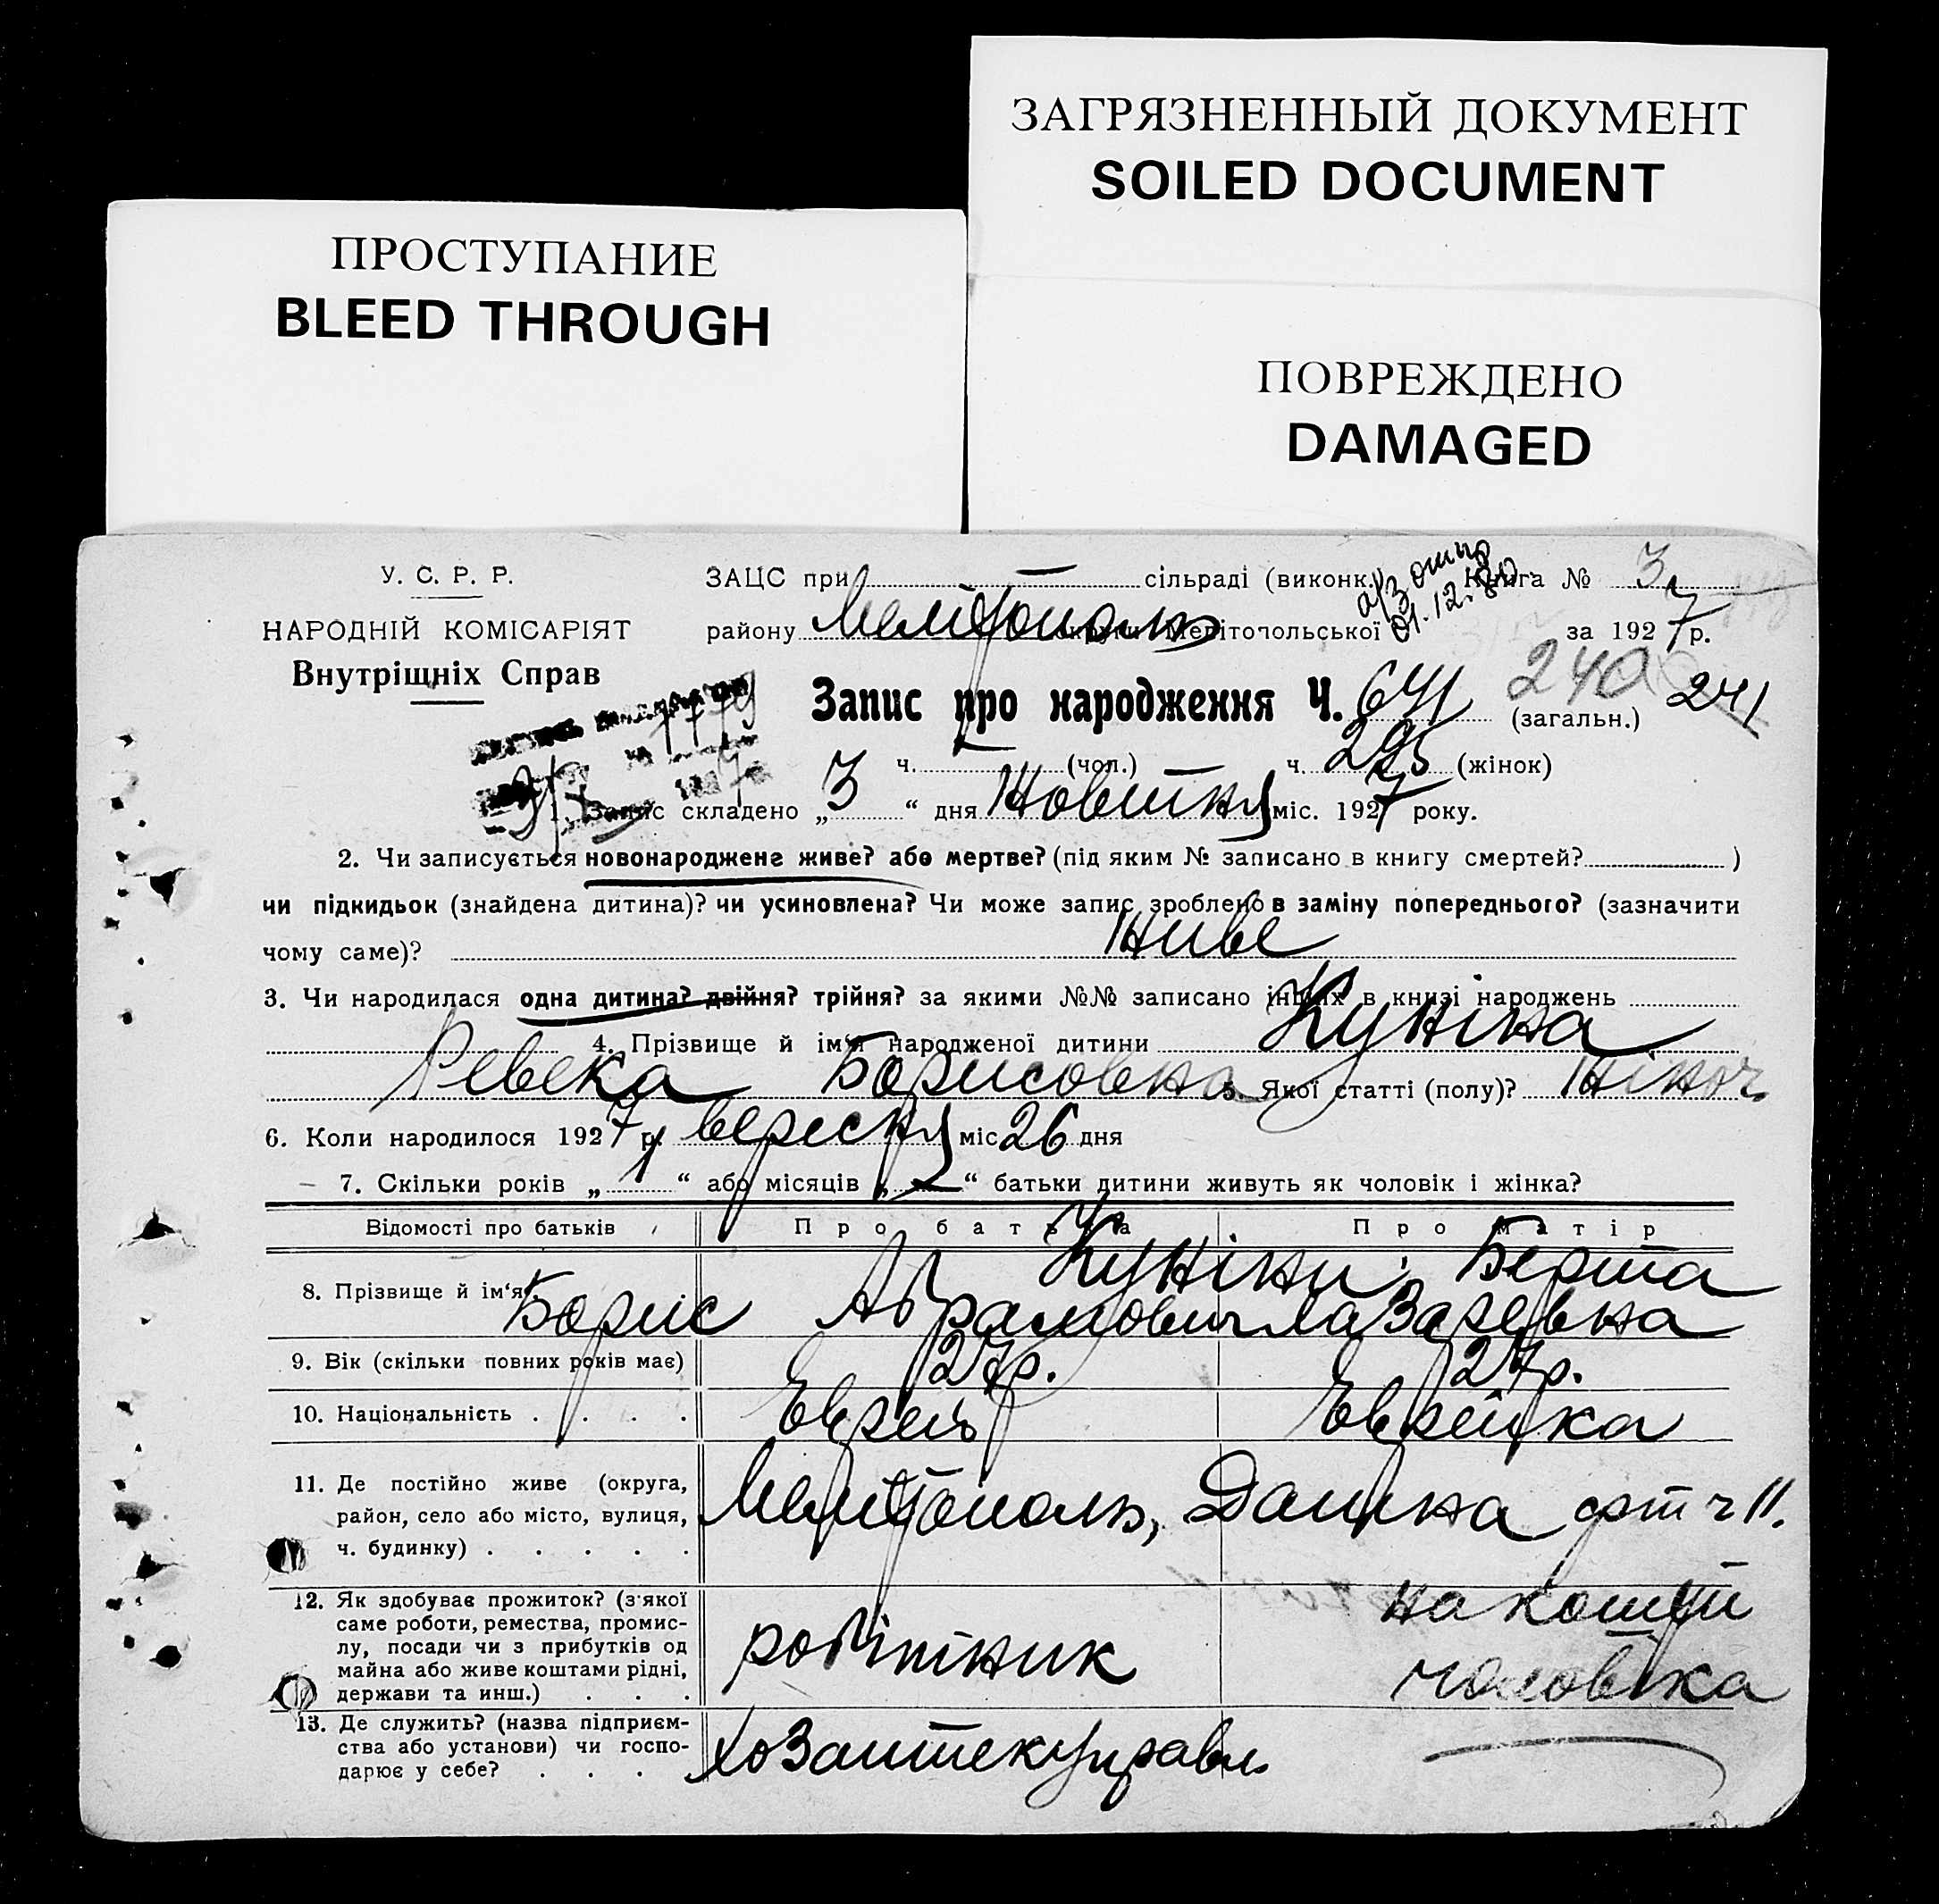 ЗАГРЯЗНЕННЫЙ ДОКУМЕНТ
SOILED DOCUMENT
ПРОСТУПАНИЕ
BLEED THROUGH
ПОВРЕЖДЕНО
DAMAGED
У. С. Р. Р.
НАРОДНІЙ КОМІСАРІЯТ
Внутрішніх Справ
ЗАЦС при — сільраді (виконк.) Книга № 3
району Мелітополь округи Мелітопольської за 1927 р.
01.12.80
Запис про народження Ч. 641 (загальн.) 240 241
ч. — (чол.) ч. 295 (жінок)
1. Запис складено „ 3 “ дня Жовтня міс. 1927 року.
2. Чи записується новонароджене живе? або мертве? (під яким № записано в книгу смертей? )
чи підкидьок (знайдена дитина)? чи усиновлена? Чи може запис зроблено в заміну попереднього? (зазначити
чому саме)? Живе
3. Чи народилася одна дитина? двійня? трійня? за якими №№ записано інших в книзі народжень
4. Прізвище й ім'я народженої дитини Куніна
Ревека Борисовна 5. Якої статті (полу)? жіноч.
6. Коли народилося 1927 р. вересня міс 26 дня
7. Скільки років „ 1 “ або місяців „ — “ батьки дитини живуть як чоловік і жінка?
Відомості про батьків Про батька Про матір
8. Прізвище й ім'я. Куніни: Берта
Борис Абрамович Лазаревна
9. Вік (скільки повних років має) 27р. 27р.
10. Національність . . . . Еврей Еврейка
11. Де постійно живе (округа,
район, село або місто, вулиця,
ч. будинку) . . . . .
Мелітополь, ч 11.
12. Як здобуває прожиток? (з якої
саме роботи, ремества, промис-
лу, посади чи з прибутків од
майна або живе коштами рідні,
держави та инш.) . . .
робітник на кошти
чоловіка
13. Де служить? (назва підприєм-
ства або установи) чи госпо-
дарює у себе? . . .